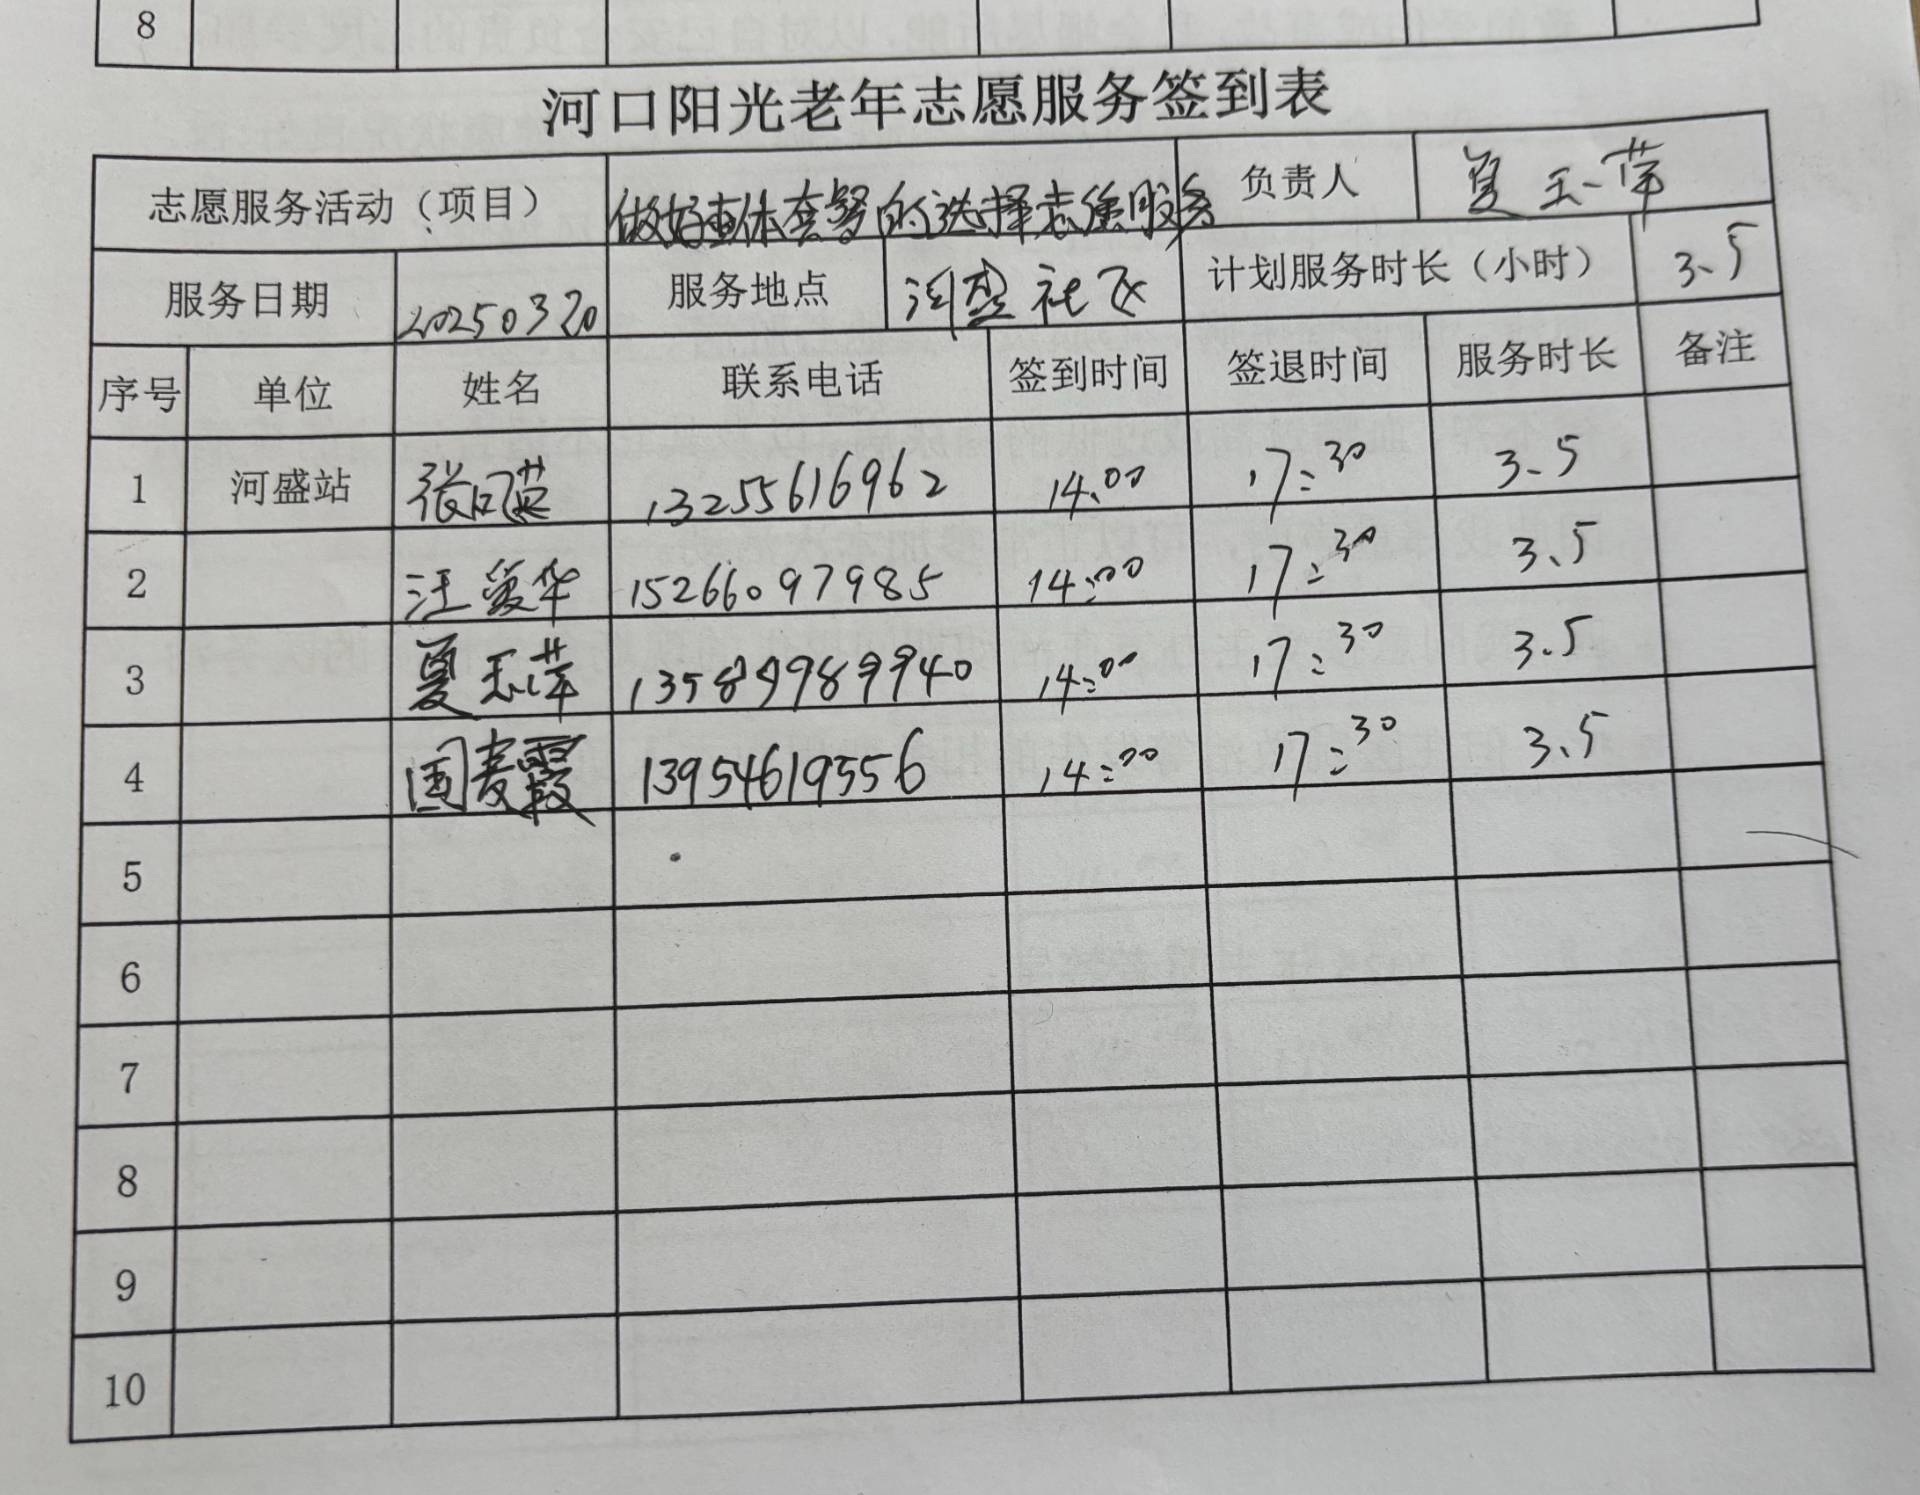 8
河口阳光老年志愿服务签到表
志愿服务活动（项目） 做好查体套餐的选择志愿服务 负责人 夏玉萍
服务日期 20250320 服务地点 河盛社区 计划服务时长（小时） 3.5
序号 单位 姓名 联系电话 签到时间 签退时间 服务时长 备注
1 河盛站 张 英 13255616962 14:00 17:30 3.5
2 汪爱华 15266097985 14:00 17:30 3.5
3 夏玉萍 13589989940 14:00 17:30 3.5
4 国秀霞 13954619556 14:00 17:30 3.5
5
6
7
8
9
10